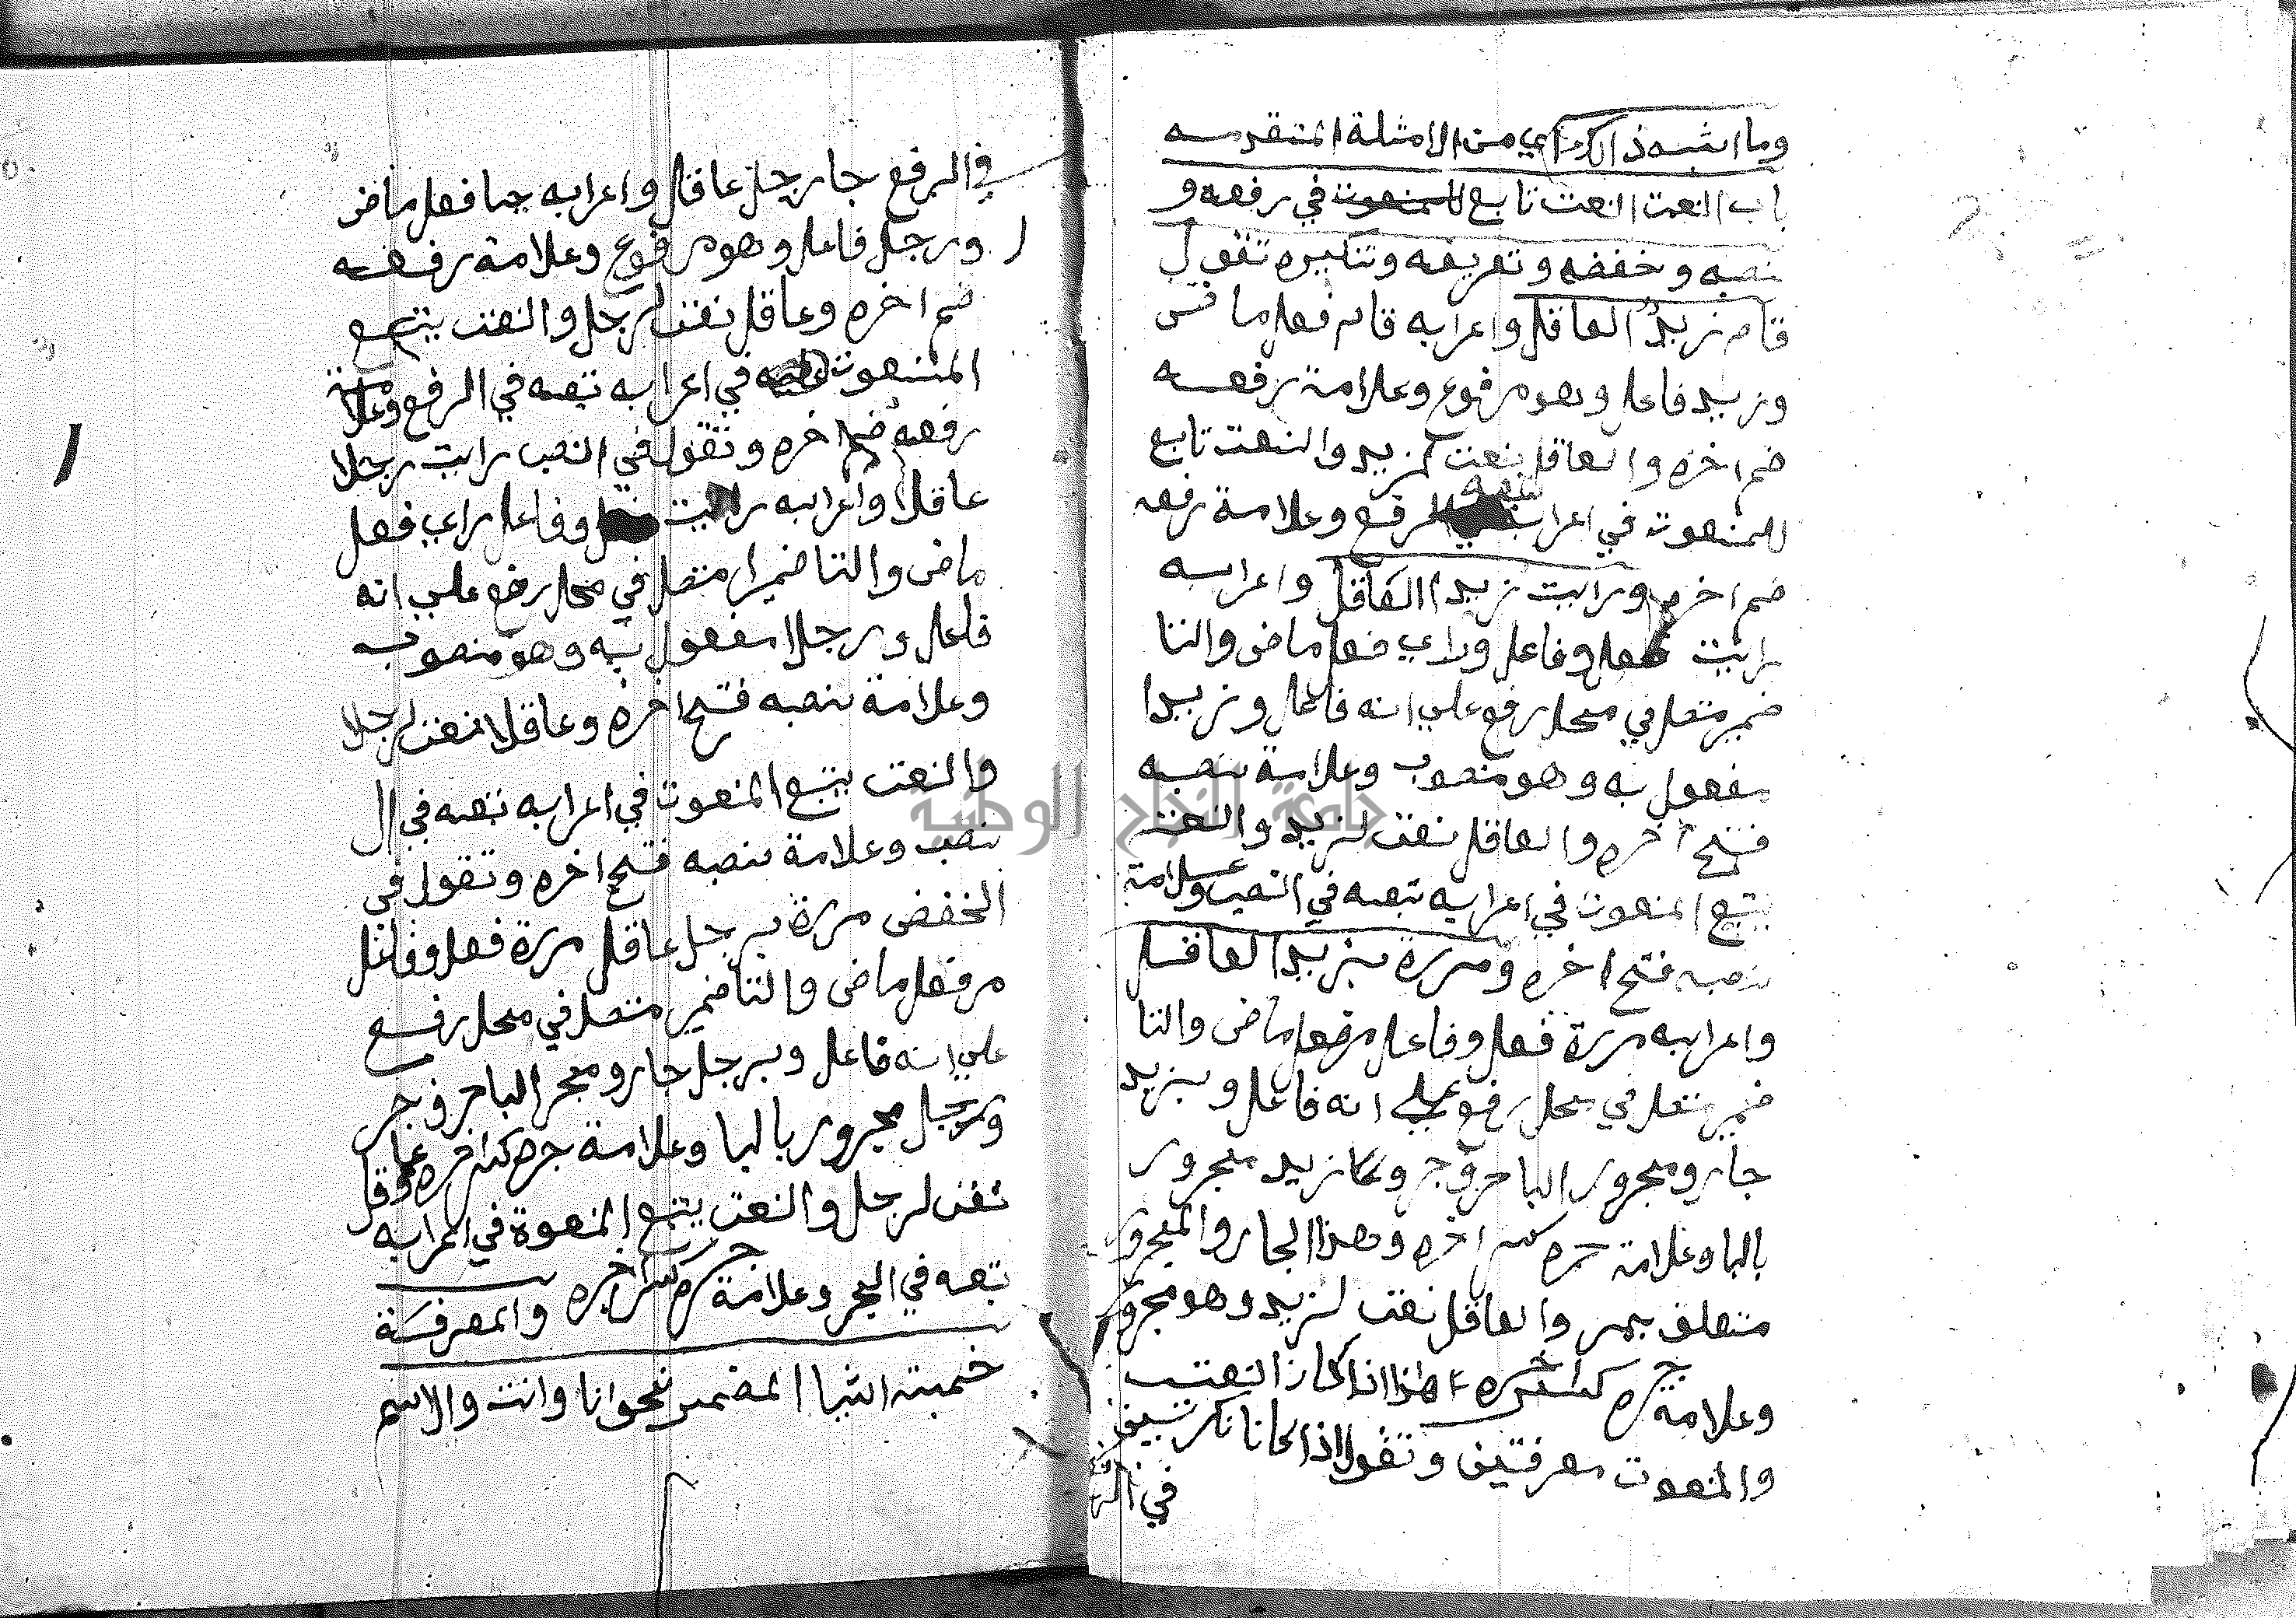 وما اشبه ذالك اي من الامثلة المتقدمه
باب النعت النعت تابع للمنعوت في رفعه و
نصبه وخفضه وتعريفه وتنكيره تقول
قام زيد العاقل واعرابه قام فعل ماض
وزيد فاعل وهو مرفوع وعلامة رفعه
ضم اخره والعاقل نعت لزيد والنعت تابع
للمنعوت في اعرابه تبعه في الرفع وعلامة رفعه
ضم اخره ورايت زيدا العاقل واعرابه
رايت فعل وفاعل وراي فعل ماض والتا
ضمير متصل في محل رفع علي انه فاعل وزيدا
مفعول به وهو منصوب وعلامة نصبه
فتح اخره والعاقل نعت لزيد والنعت
يتبع المنعوت في اعرابه تبعه في النصب وعلامة
نصبه فتح اخره ومررة بزيد العاقل
واعرابه مررة فعل وفاعل مر فعل ماض والتا
ضمير متصل في محل رفع علي انه فاعل وبزيد
جار ومجرور البا حروف جر وزيد مجرور
بالبا وعلامة جره كسر اخره وهذا الجار والمجرور
متعلق بمر والعاقل نعت لزيد وهو مجرور
وعلامة جره كسر اخره هذا اذا كان النعت
والمنعوت معرفتين وتقول اذا كانا نكرتين
في الرفع
في الرفع جا رجل عاقل واعرابه جا فعل ماض
ورجل فاعل وهو مرفوع وعلامة رفعه
ضم اخره وعاقل نعت لرجل والنعت يتبع
المنعوت في اعرابه تبعه في الرفع وعلامة
رفعه ضم اخره وتقول في النصب رايت رجلا
عاقلا واعرابه رايت فعل وفاعل راي فعل
ماض والتا ضميرا متصل في محل رفع علي انه
فاعل ورجلا مفعول به وهو منصوب
وعلامة نصبه فتح اخره وعاقلا نعت لرجلا
والنعت يتبع المنعوت في اعرابه تبعه في ال
نصب وعلامة نصبه فتح اخره وتقول في
الخفض مررة برجل عاقل مررة فعل وفاعل
مر فعل ماض والتا ضمير متصل في محل رفع
علي انه فاعل وبرجل جار ومجر البا حروف جر
ورجل مجرور بالبا وعلامة جره كسر اخره وعاقل
نعت لرجل والنعت يتبع المنعوة في اعرابه
تبعه في الجر وعلامة جره كسر اخره والمعرفة
خمسة اشيا المضمير نحو انا وانت والاسم
جامعة النجاح الوطنية